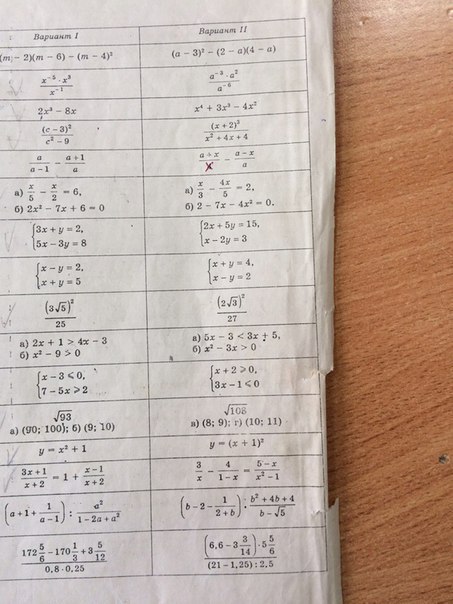 Вариант I
Вариант II
(m − 2)(m − 6) − (m − 4)²
(a − 3)² − (2 − a)(4 − a)
x⁻⁵ · x³ / x⁻¹
a⁻³ · a² / a⁻⁶
2x³ − 8x
x⁴ + 3x³ − 4x²
(c − 3)² / c² − 9
(x + 2)³ / x² + 4x + 4
a / a − 1 − a + 1 / a
a + x / x − a − x / a
а) x/5 − x/2 = 6,
б) 2x² − 7x + 6 = 0
а) x/3 − 4x/5 = 2,
б) 2 − 7x − 4x² = 0.
{3x + y = 2,
5x − 3y = 8
{2x + 5y = 15,
x − 2y = 3
{x − y = 2,
x + y = 5
{x + y = 4,
x − y = 2
(3√5)² / 25
(2√3)² / 27
а) 2x + 1 > 4x − 3
б) x² − 9 > 0
а) 5x − 3 < 3x + 5,
б) x² − 3x > 0
{x − 3 ⩽ 0,
7 − 5x ⩾ 2
{x + 2 ⩾ 0,
3x − 1 ⩽ 0
√93
а) (90; 100); б) (9; 10)
√108
в) (8; 9); г) (10; 11)
y = x² + 1
y = (x + 1)²
3x + 1 / x + 2 = 1 + x − 1 / x + 2
3 / x − 4 / 1 − x = 5 − x / x² − 1
(a + 1 + 1 / a − 1) : a² / 1 − 2a + a²
(b − 2 − 1 / 2 + b) : b² + 4b + 4 / b − √5
172 5/6 − 170 1/3 + 3 5/12 / 0,8 · 0,25
(6,6 − 3 3/14) · 5 5/6 / (21 − 1,25) : 2,5